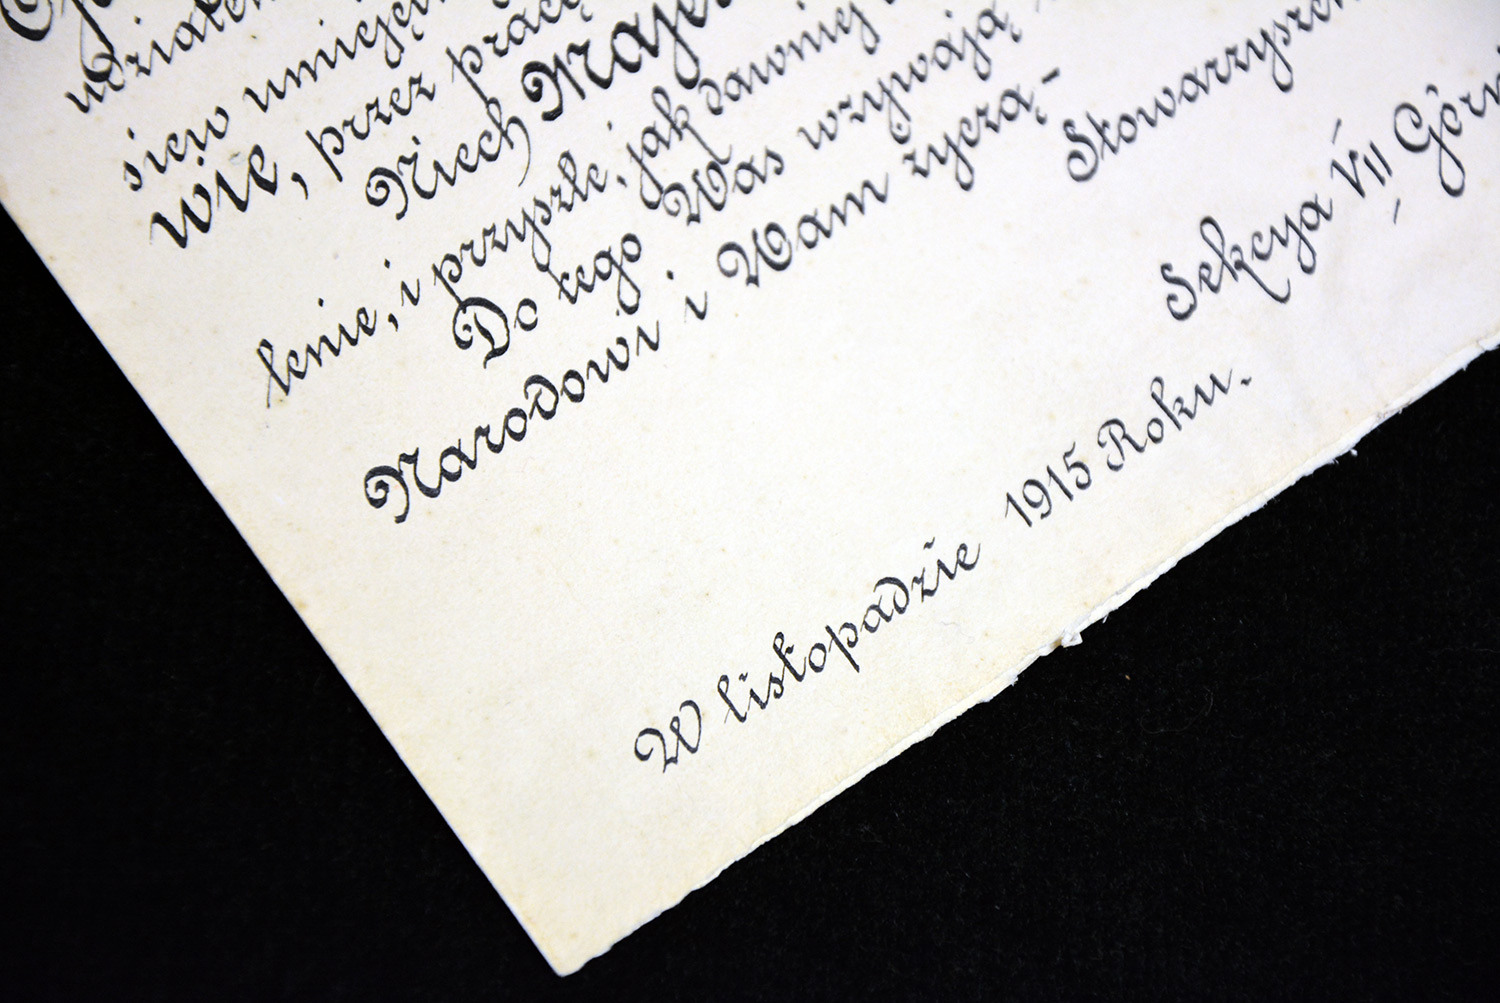 udziałem
siew umiejęt
wie, przez pracę
Niech Maj
lenie, i przyszłe, jak dawniej
Do tego Was wzywają
Narodowi i Wam życzą-
Stowarzyszen
Sekcya VII Górn
W listopadzie 1915 Roku.